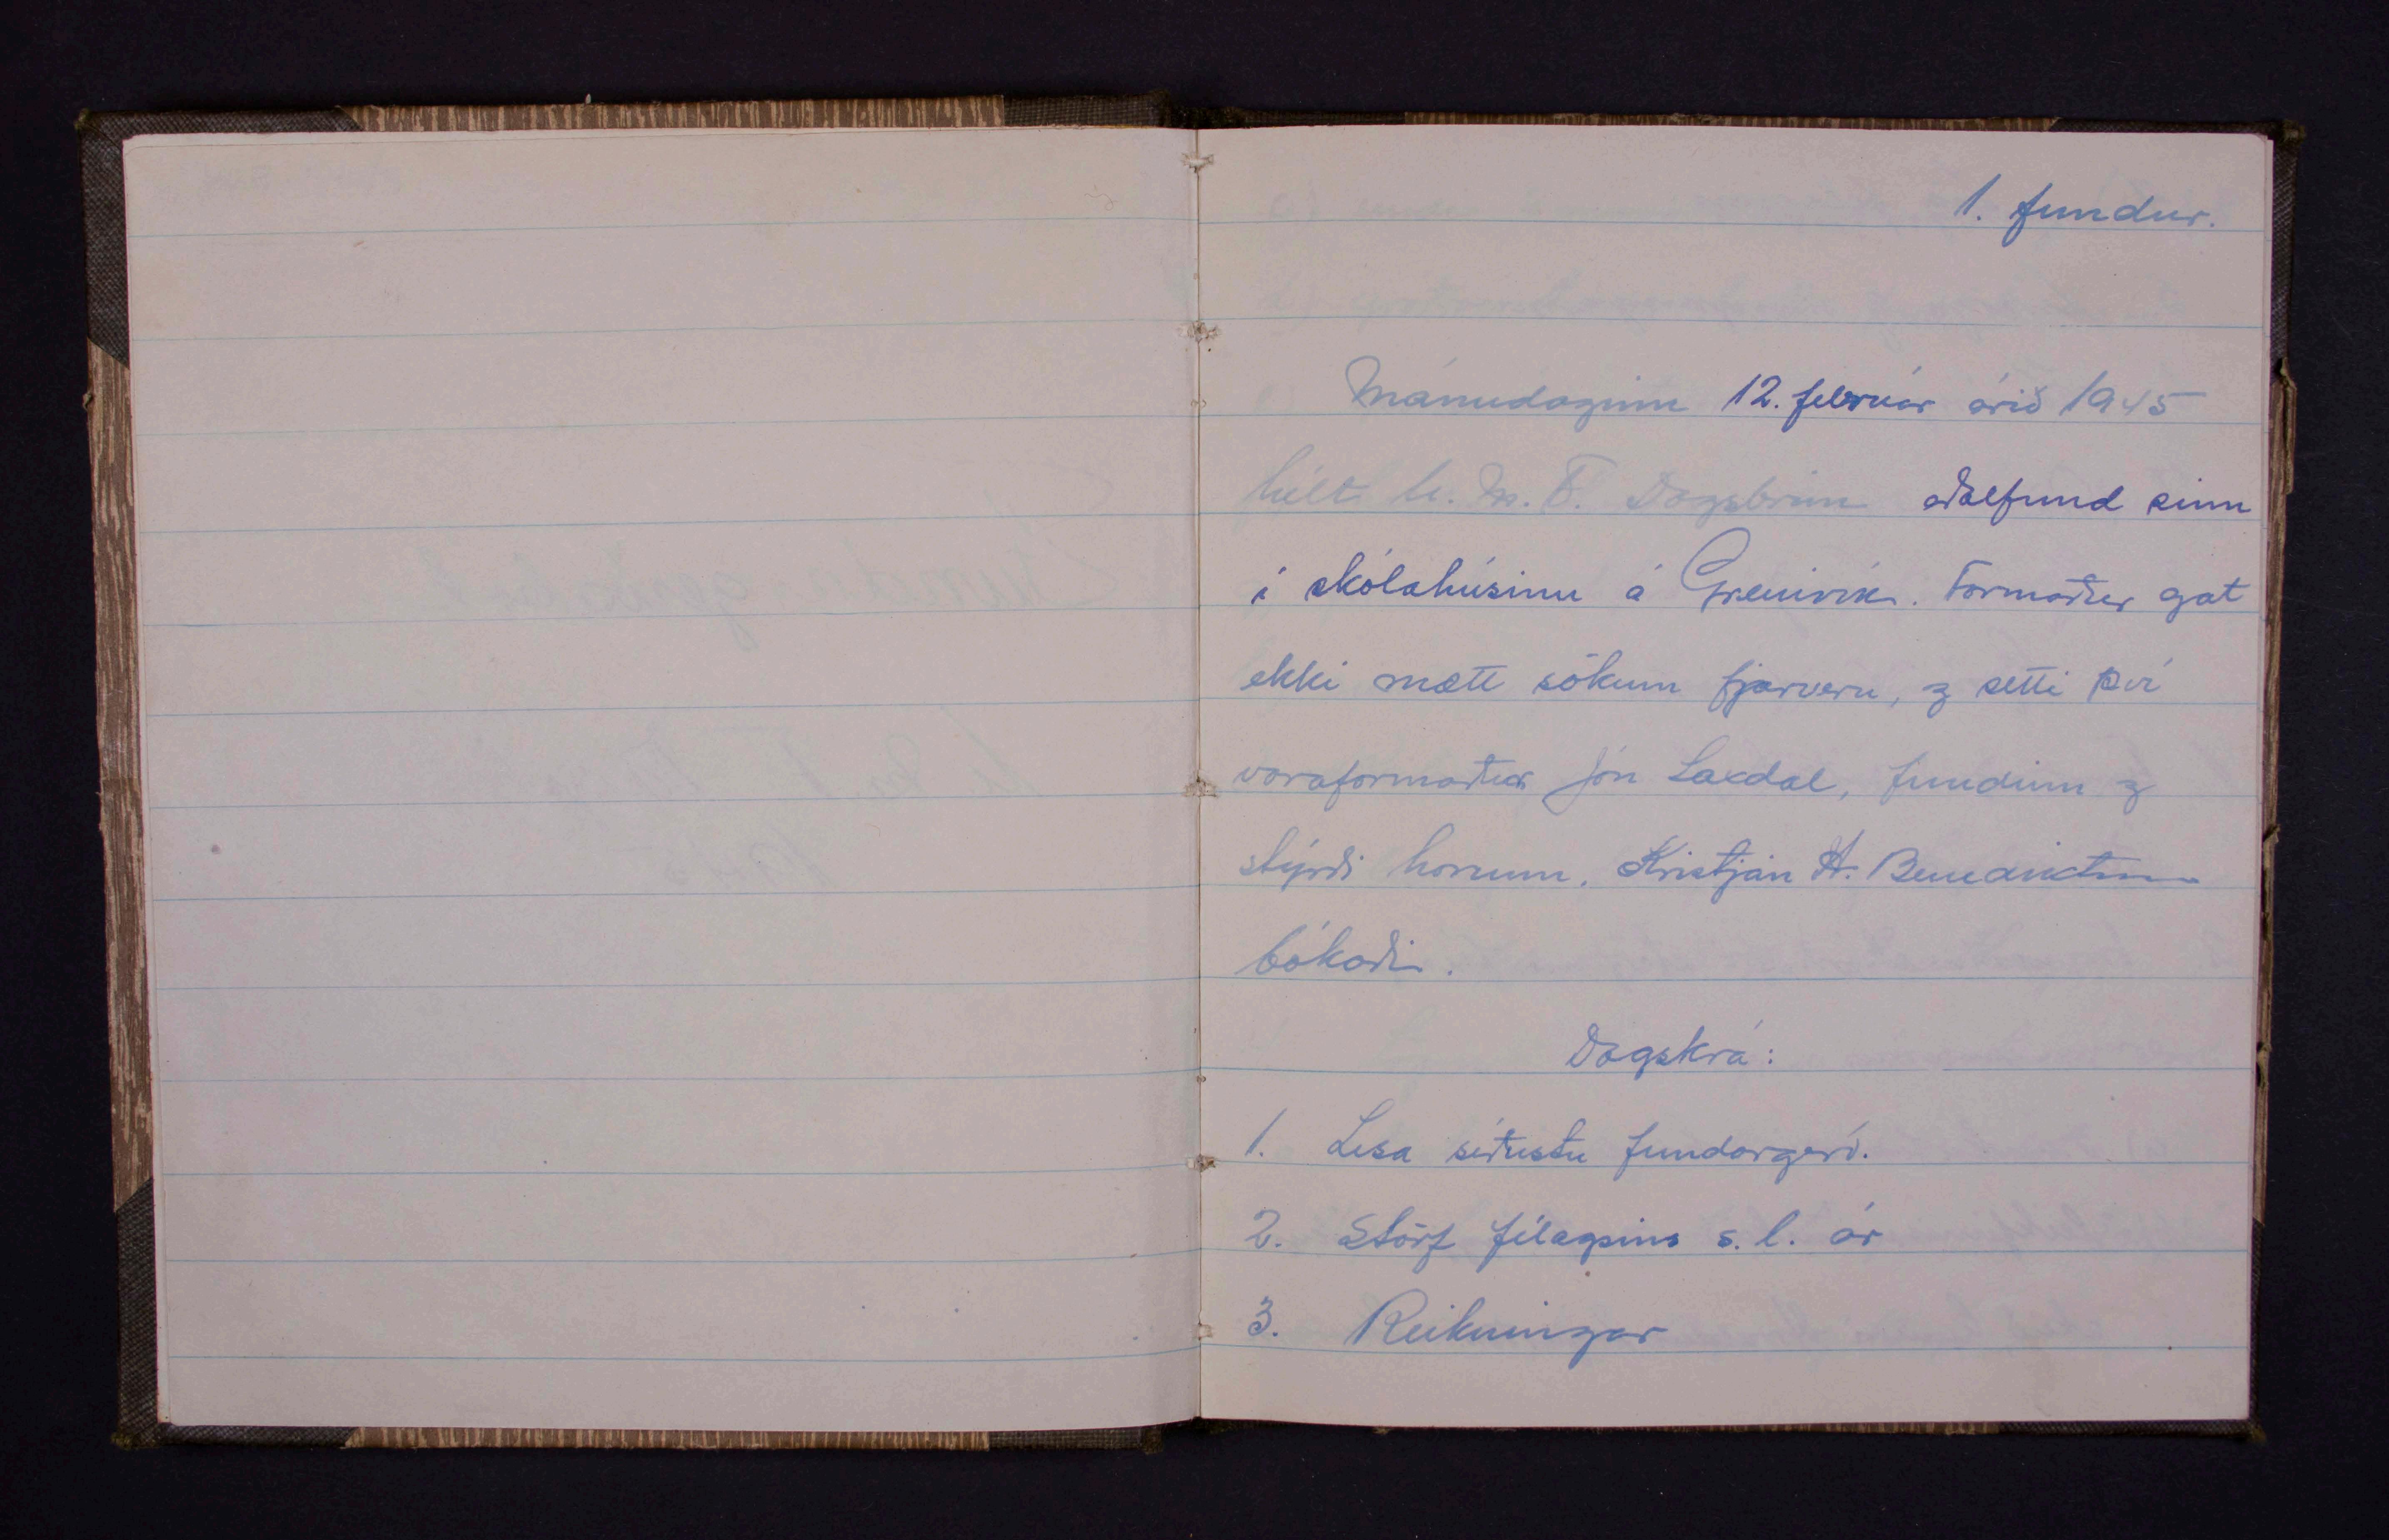 1. fundur.
Mánudaginn 12. febrúar árið 1945
hélt U. M. F. Dagsbrún aðalfund sinn
í skólahúsinu á Grenivík. Formaður gat
ekki mætt sökum fjarveru, og setti því
varaformaður Jón Laxdal, fundinn og
stýrði honum. Kristján H. Benediktsson
bókaði.
Dagskrá:
1. Lesa síðustu fundargerð.
2. Störf félagsins s. l. ár
3. Reikningar